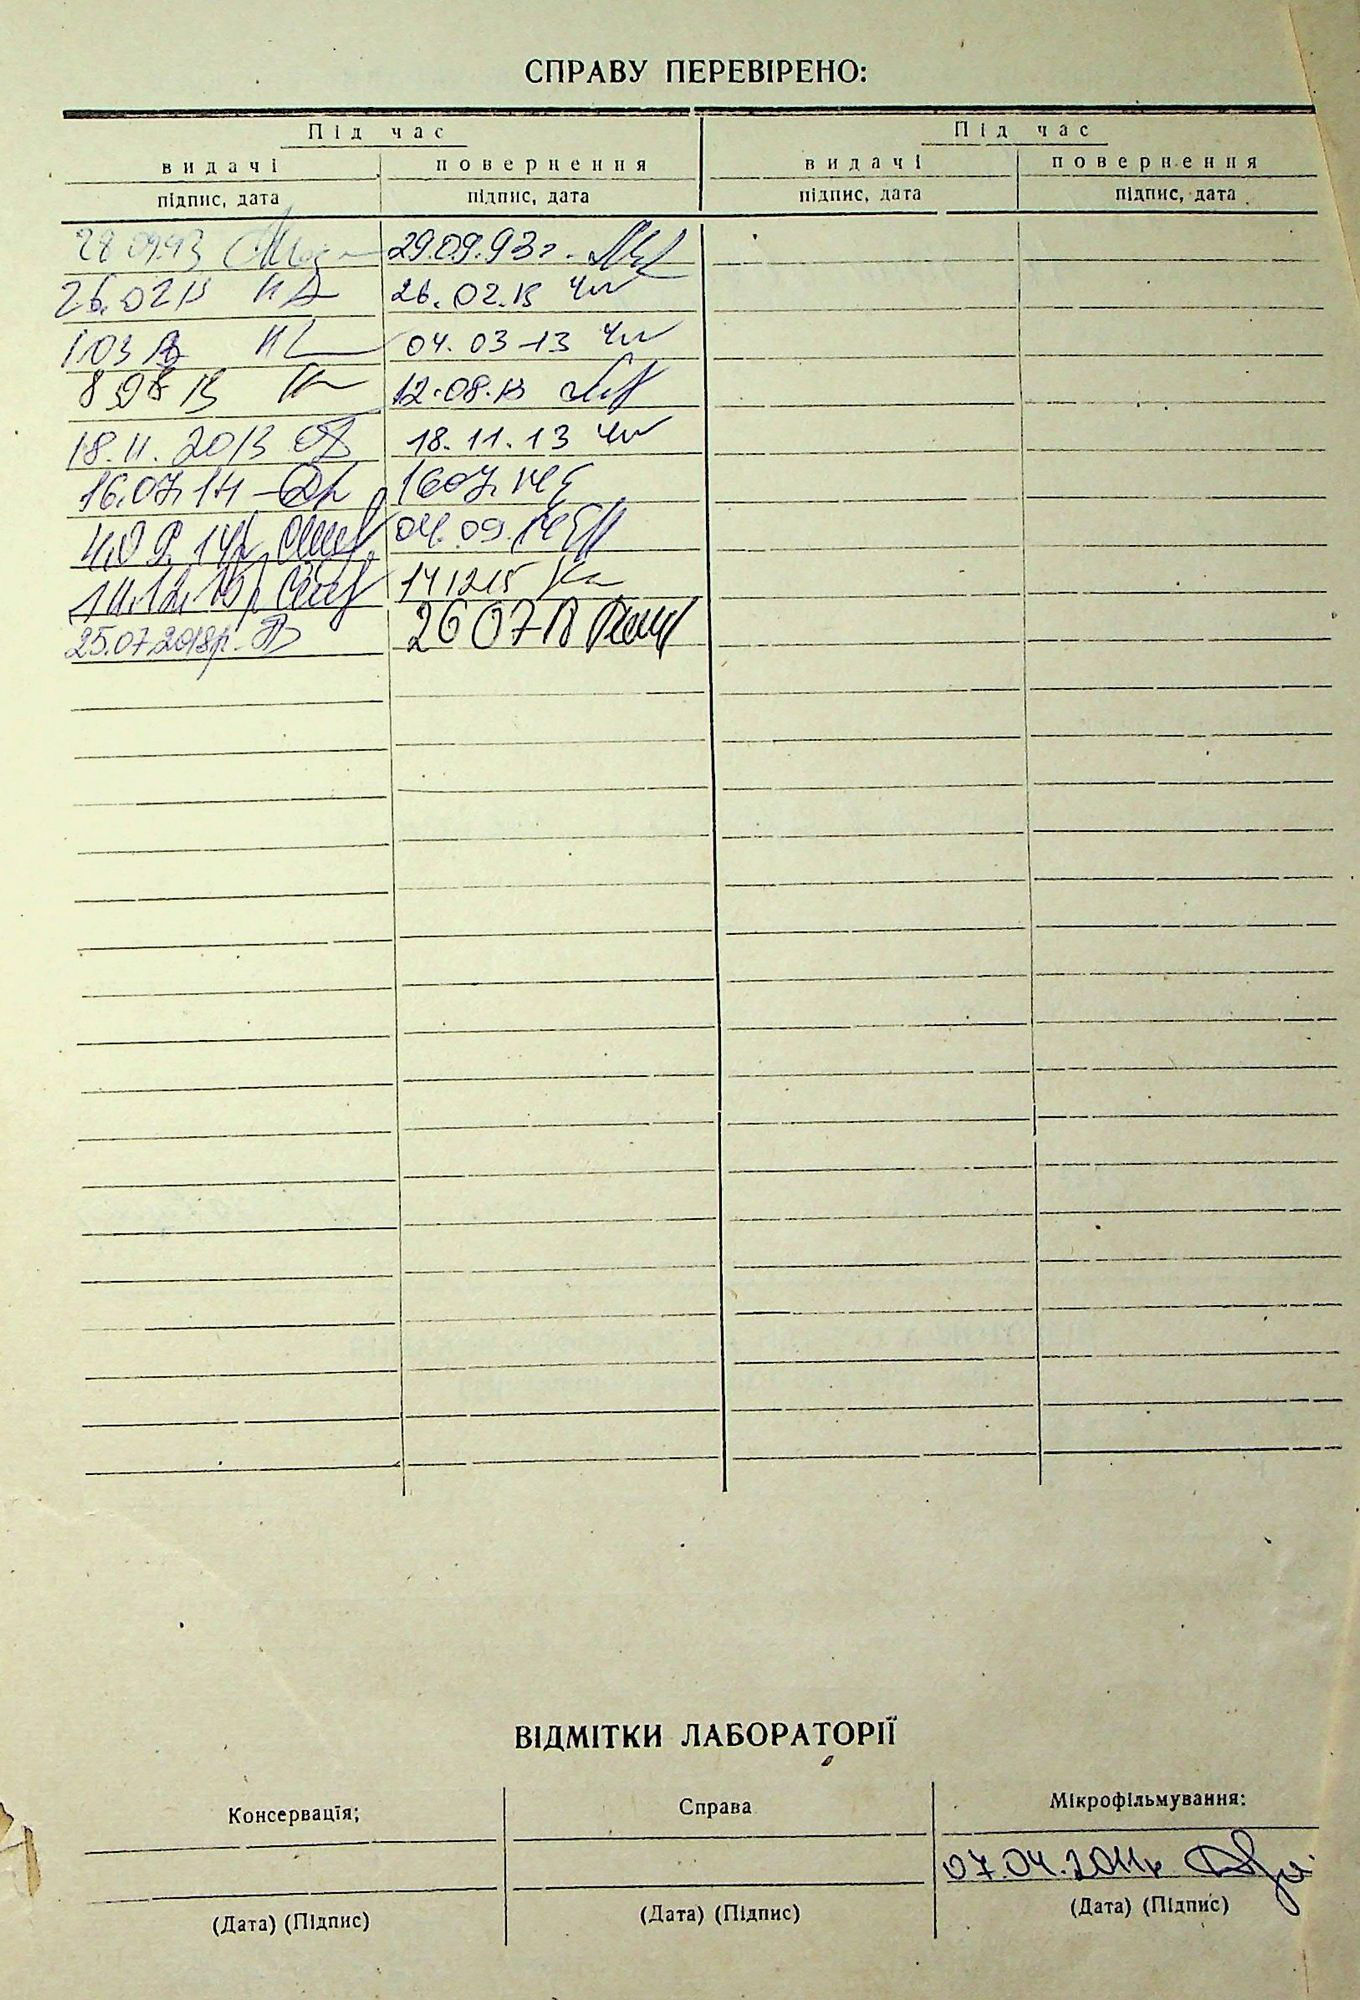 СПРАВУ ПЕРЕВІРЕНО:
Під час Під час
видачі повернення видачі повернення
підпис, дата підпис, дата підпис, дата підпис, дата
28.09.93 29.09.93г.
26.02.13 26.02.13
1.03.13 04.03.13
8.08.13 12.08.13
18.11.2013 18.11.13
16.07.14 16.07.14
4.09.14р. 04.09.14
14.12.15р 14 12 15
25.07.2018р. 26 07 18
ВІДМІТКИ ЛАБОРАТОРІЇ
Консервація; Справа Мікрофільмування:
07.04.2011р.
(Дата) (Підпис) (Дата) (Підпис) (Дата) (Підпис)